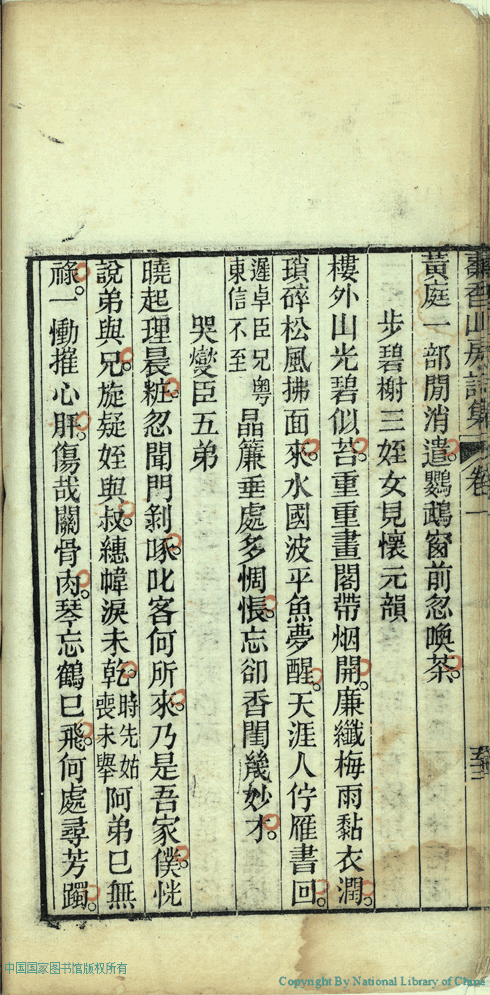 香山房詩集 卷一
黃庭一部閒消遣。鸚鵡窗前忽喚茶。
步碧榭三姪女見懷元韻
樓外山光碧似苔。重重畫閣帶烟開。廉纖梅雨黏衣潤。
瑣碎松風拂面來。水國波平魚夢醒。天涯人佇雁書回。
遲卓臣兄粵
東信不至
晶簾垂處多惆悵。忘卻香閨幾妙才。
哭燮臣五弟
曉起理晨粧。忽聞門剝啄。叱客何所來。乃是吾家僕。恍
說弟與兄。旋疑姪與叔。繐幃淚未乾。時先姑喪未舉阿弟巳無
祿。一慟摧心肝。傷哉關骨肉。琴忘鶴巳飛。何處尋芳躅。
中国国家图书馆版权所有
Copyright By National Library of China